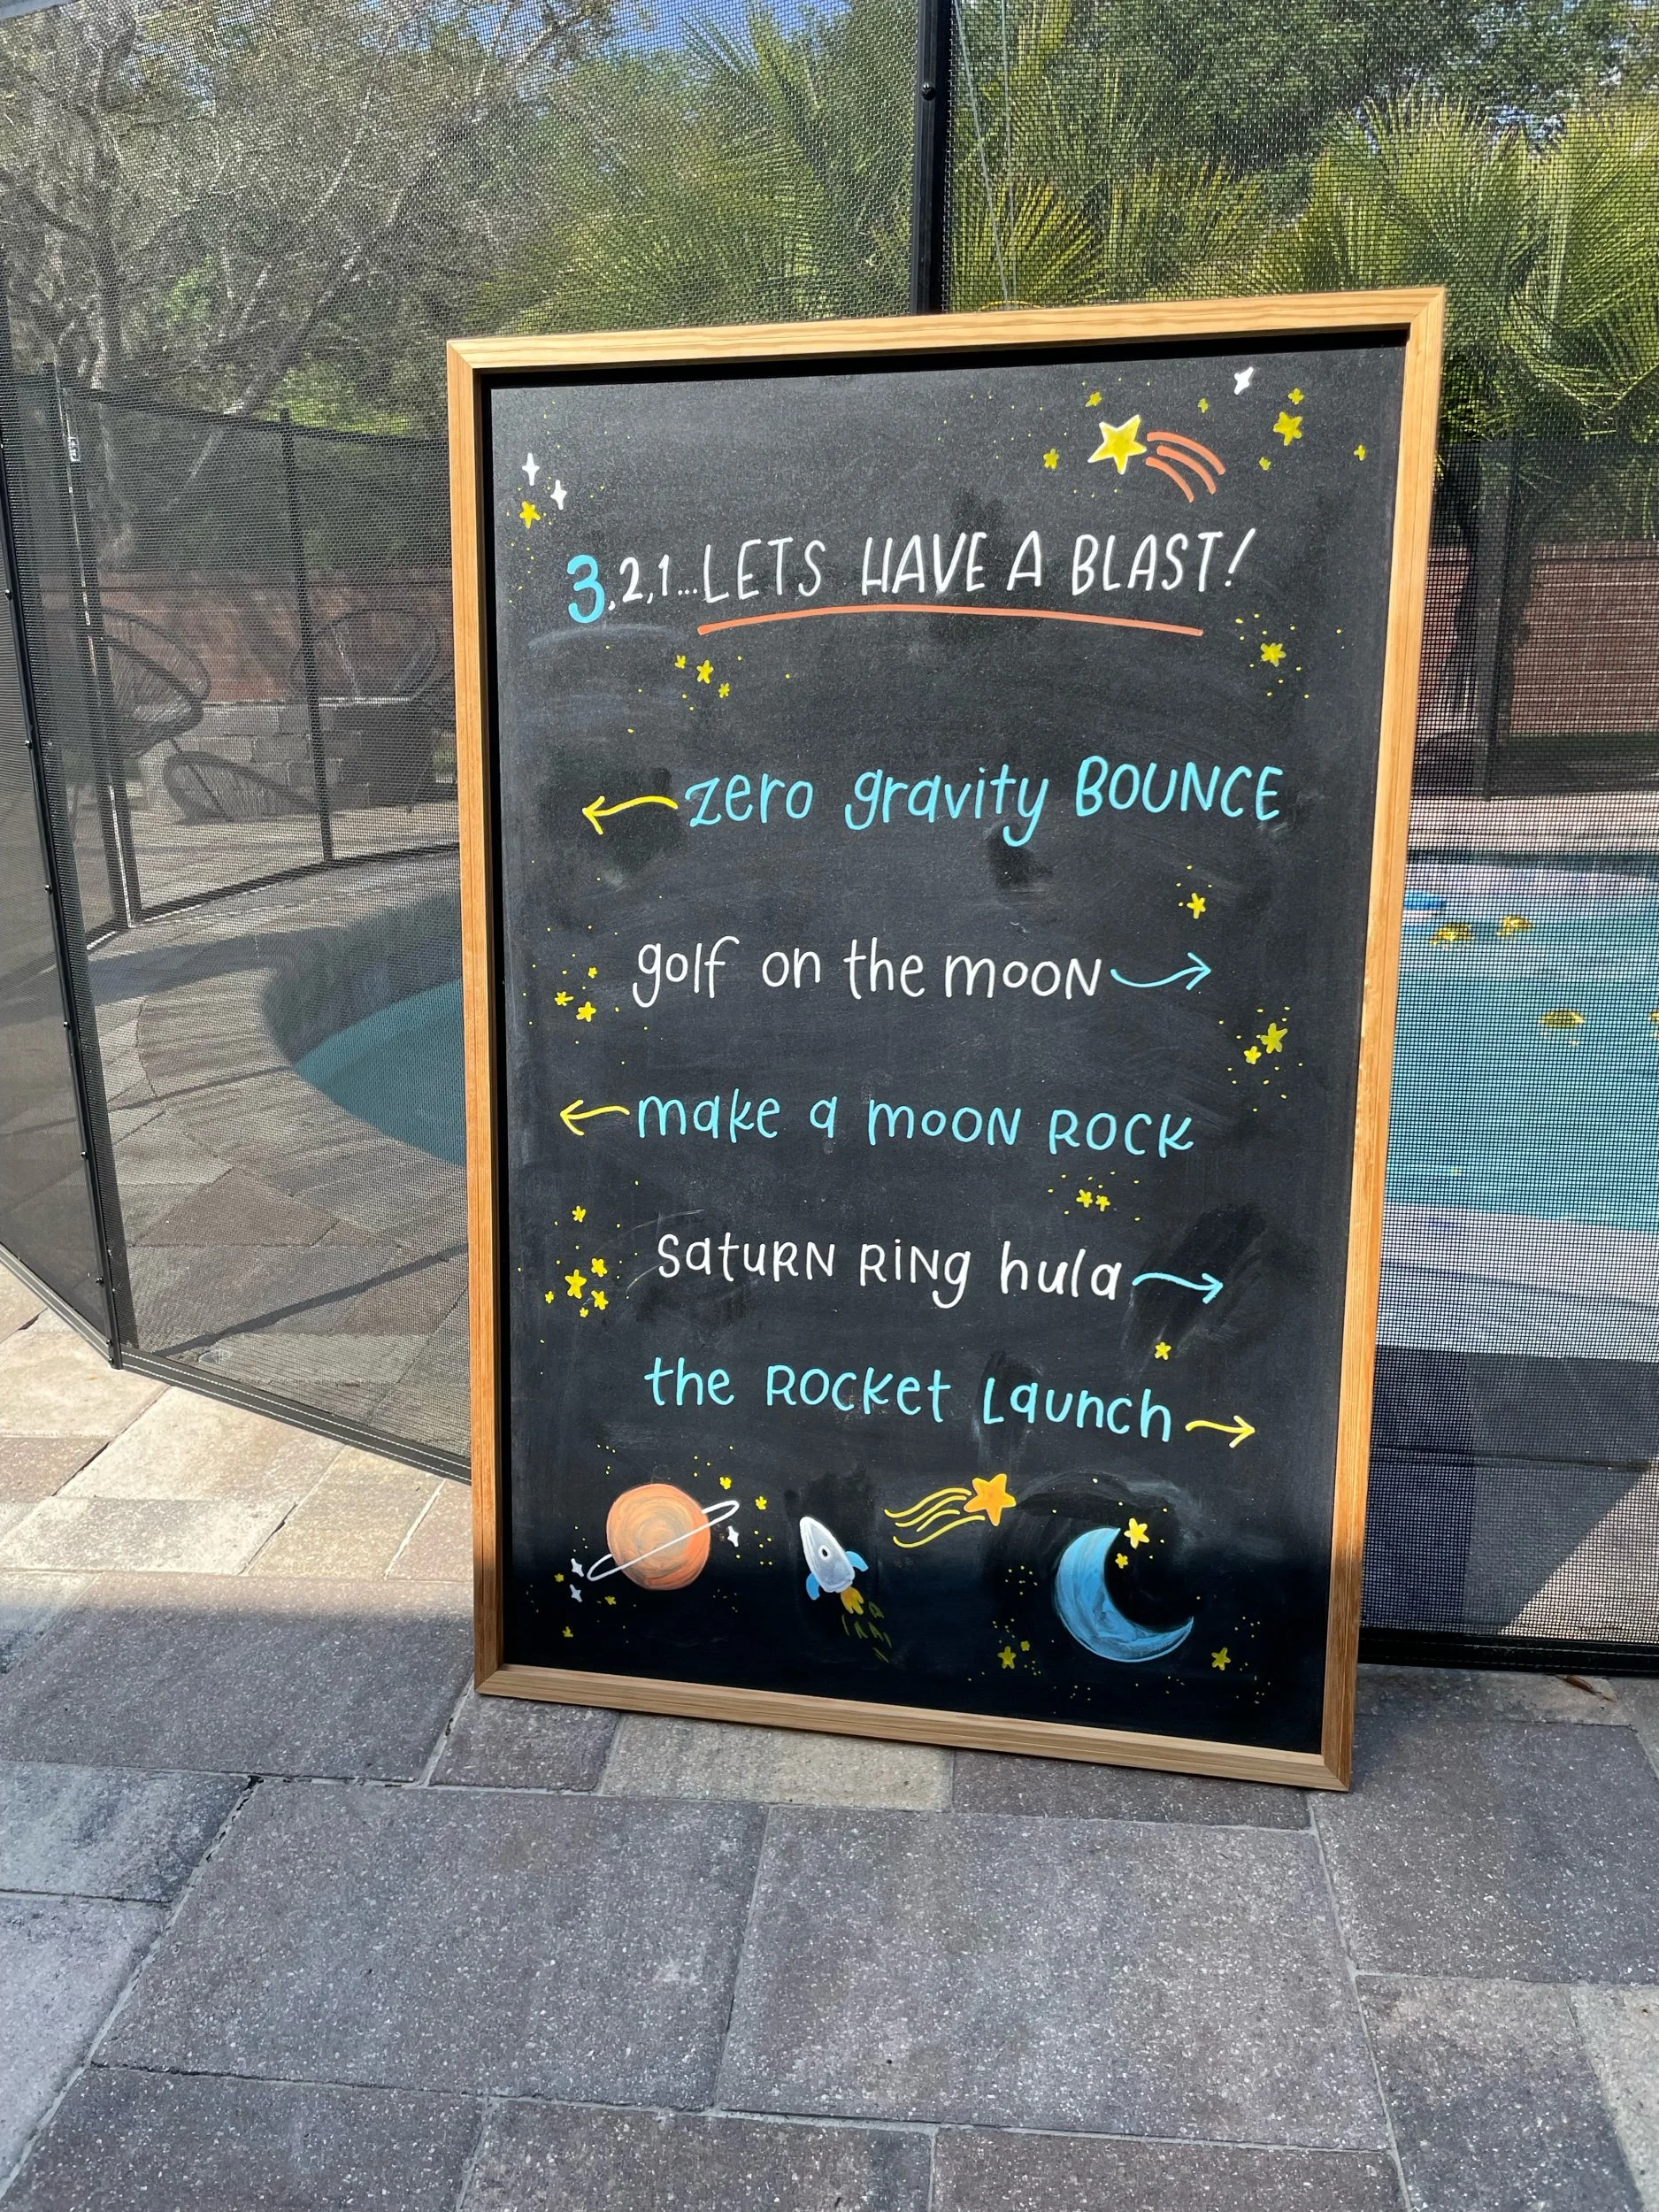 3,2,1...LETS HAVE A BLAST!
zero gravity BOUNCE
golf on the mooN
make a mooN ROCK
SatuRN RiNg hula
the ROCKet Launch